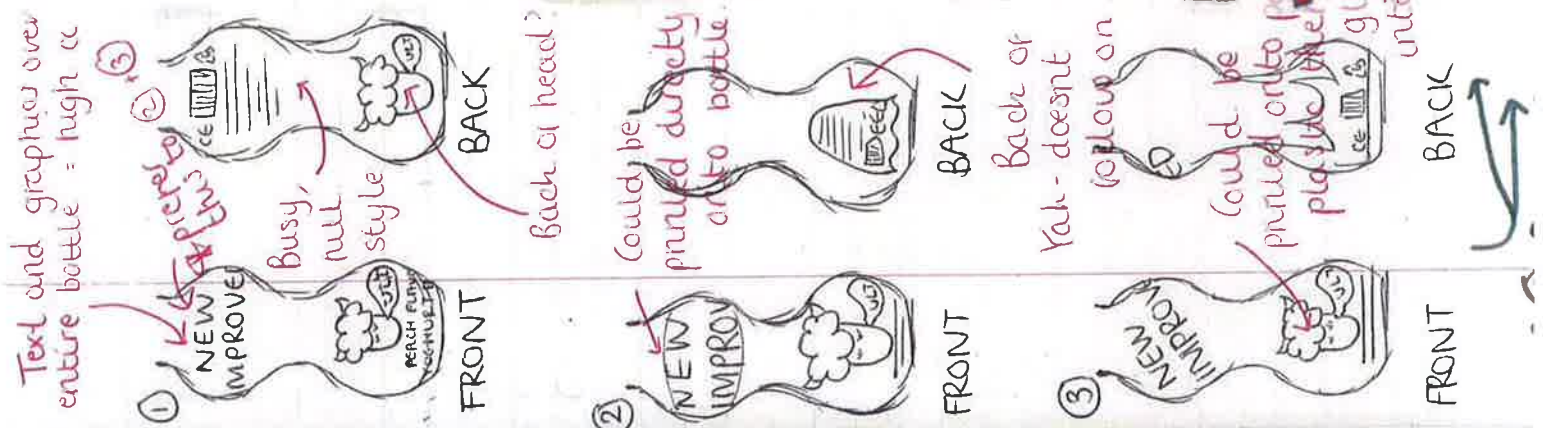 Text and graphics over
entire bottle = high cc
① 
NEW
IMPROVE
PEACH FLAVO
YOGHURT
FRONT
prefer to
this
Busy,
null
style
② + ③
CE
BACK
Back of head?
②
NEW
IMPROV
FRONT
Could be
printed directly
onto bottle.
BACK
③
NEW
IMPROV
FRONT
Back of
Yak - doesnt
follow on
Could be
printed onto p
plastic then
gl
into
CE
BACK